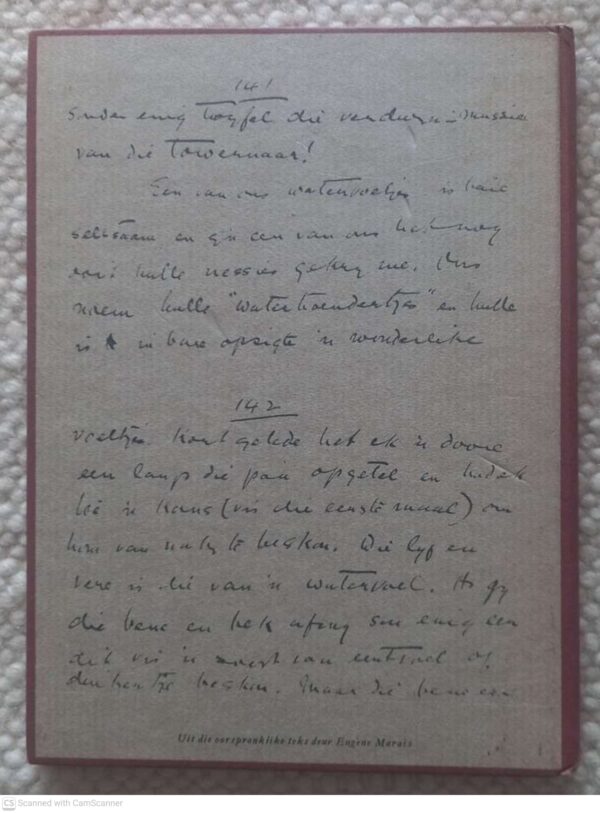 141
sonder enig twyfel die verdwyn-
van die towenaar!
Een van ons watervoeltjes is baie
seltsaam en g'n een van ons het nog
ooit hulle nessies gekry nie. Ons
noem hulle "waterhoendertjes" en hulle
is in baie opsigte 'n wonderlike
142
voeltjie. Kort gelede het ek 'n dooie
een langs die pan opgetel en
'n kans (vir die eerste maal) om
hom van naby te beskou. Die lyf en
vere is die van 'n watervoel. As gy
die bene en bek afsny sou enig een
dit vir 'n soort van eentvoel of
beskou. Maar die bene en
Uit die oorspronklike teks deur Eugène Marais
CS Scanned with CamScanner